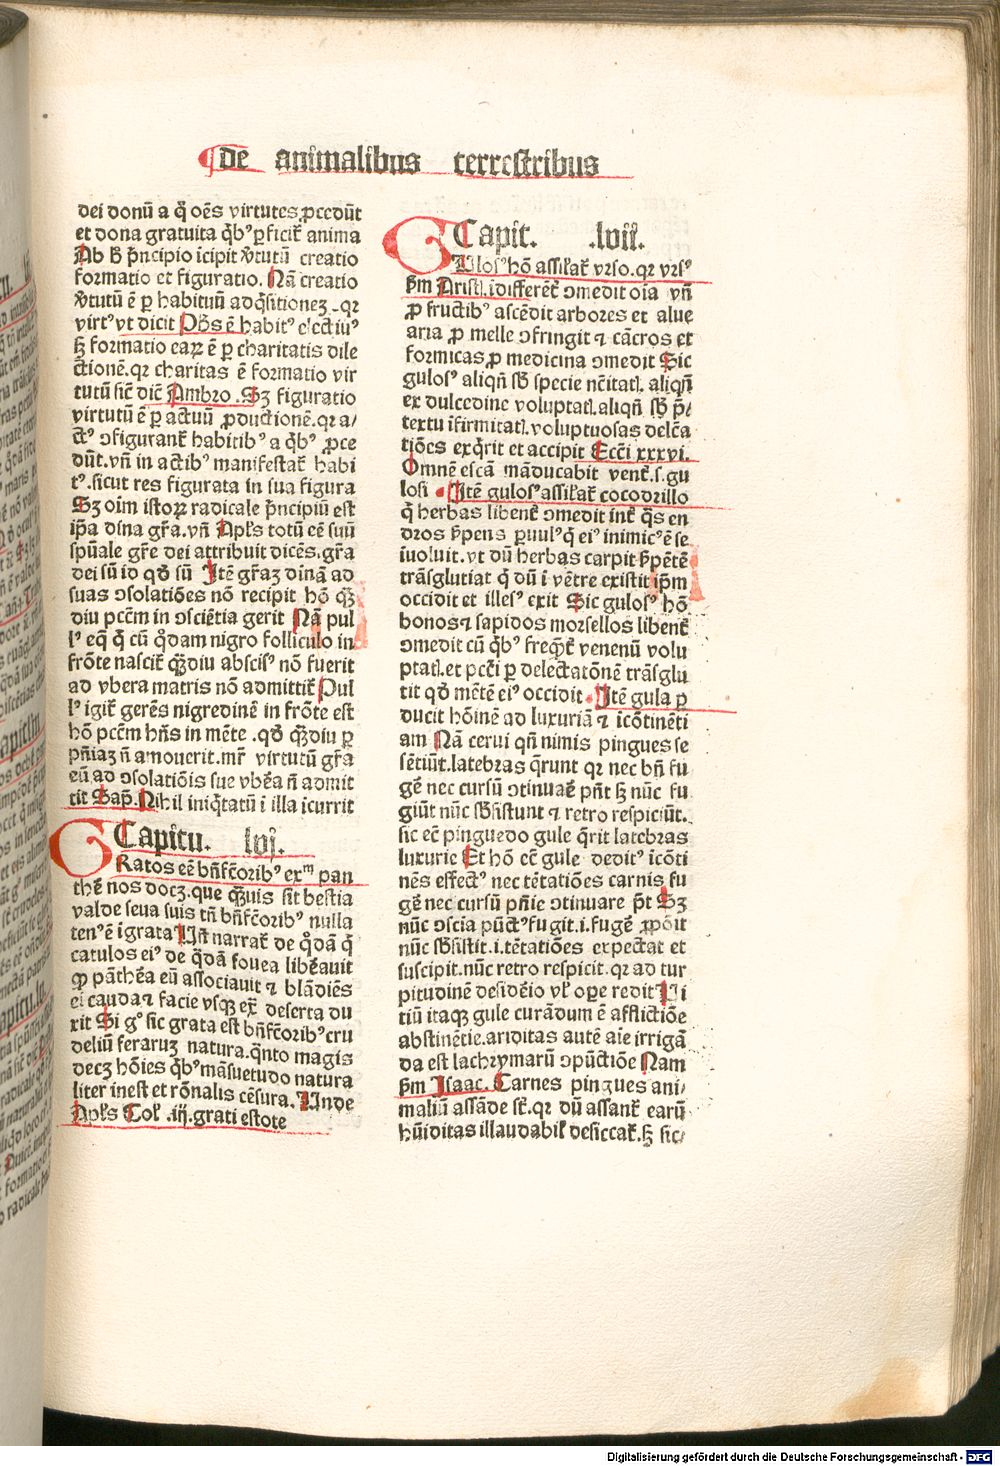 de animalibus terrestribus
dei donū a q̄ oēs virtutes ꝓcedūt
et dona gratuita q̄bꝰ ꝑficit᷑ anima
Ab ħ p̄ncipio īcipit v̄tutū creatio
formatio et figuratio. Nā creatio
v̄tutū ē ꝑ habituū adq̄sitionez. qꝛ
virtꝰ vt dicit Ph̄s ē habitꝰ electiuꝰ
sꝫ formatio eaꝝ ē ꝑ charitatis dile
ctionē. qꝛ charitas ē formatio vir
tutū sic̄ dic̄ Ambro. Sꝫ figuratio
virtutū ē ꝑ actuū ꝓductionē. qꝛ a/
ctꝰ ↄfigurant᷑ habitibꝰ a q̄bꝰ ꝓce
dūt. vn̄ in actibꝰ manifestat᷑ habi
tꝰ. sicut res figurata in sua figura
Sꝫ oīm istoꝝ radicale p̄ncipiū est
ip̄a dīna gr̄a. vn̄ Apl̄s totū eē suū
spūale gr̄e dei attribuit dicēs. gr̄a
dei sū id qd̄ sū Itē gr̄aꝫ dīnā ad
suas ↄsolatiōes nō recipit hō qꝫ̄
diu pctm̄ in ↄsciētia gerit Nā pul
lꝰ eq̄ q̄ cū q̄dam nigro folliculo in
frōte nascit᷑ qꝫ̄diu abscisꝰ nō fuerit
ad vbera matris nō admittit᷑ Pul
lꝰ igit᷑ gerēs nigredinē in frōte est
hō pctm̄ hn̄s in mēte. qd̄ qꝫ̄diu ꝑ
pn̄iaꝫ n̄ amouerit. mr̄ virtutū gr̄a
eū ad ↄsolatiōis sue vbēa n̄ admit
tit Sap̄. Nihil iniq̄tatū ī illa īcurrit
Capitu. lvj.
GRatos eē bn̄fc̄oribꝰ exᵐ pan
thē nos docꝫ. que qꝫ̄uis sit bestia
valde seua suis tn̄ bn̄fc̄oribꝰ nulla
tenꝰ ē īgrata Un̄ narrat᷑ de q̄dā q̄
catulos eiꝰ de q̄dā fouea libēauit
qꝫ pāthēa eū associauit ⁊ blādiēs
ei cauda ⁊ facie vsqꝫ ex̄ deserta du
xit Si gͦ sic grata est bn̄fc̄oribꝰ cru
deliū feraruꝫ natura. q̄nto magis
decꝫ hōies q̄bꝰ māsuetudo natura
liter inest et rōnalis cēsura. Unde
Apl̄s Col̄ .iij. grati estote
Capit. .lvij.
GUlosꝰ hō assil̄at᷑ vrso. qꝛ vrsꝰ
sm̄ Aristl. īdifferēt᷑ ↄmedit oīa vn̄
ꝓ fructibꝰ ascēdit arbores et alue
aria ꝓ melle ↄfringit ⁊ cācros et
formicas ꝓ medicina ↄmedit Sic
gulosꝰ aliqn̄ sb̄ specie nc̄itatꝭ. aliqn̄
ex dulcedine voluptatꝭ. aliqn̄ sb̄ p̄/
textu īfirmitatꝭ. voluptuosas delc̄a
tiōes exq̄rit et accipit Ecc̄i xxxvi.
Omnē escā māducabit vent᷑. s. gu
losi Itē gulosꝰ assil̄at᷑ cocodrillo
q̄ herbas libent᷑ ↄmedit int᷑ q̄s en
dros s̄pens ꝑuulꝰ q̄ eiꝰ inimicꝰ ē se
īuoluit. vt dū herbas carpit s̄pētē
trāsglutiat q̄ dū ī vētre existit ip̄m
occidit et illesꝰ exit Sic gulosꝰ hō
bonos ⁊ sapidos morsellos libent᷑
ↄmedit cū q̄bꝰ freq̄t᷑ venenū volu
ptatꝭ. et pct̄i ꝑ delectatōnē trāsglu
tit qd̄ mētē eiꝰ occidit Itē gula ꝑ
ducit hōinē ad luxuriā ⁊ īcōtinēti
am Nā cerui qn̄ nimis pingues se
sētiūt. latebras q̄runt qꝛ nec bn̄ fu
gē nec cursū ↄtinuaē pn̄t sꝫ nūc fu
giūt nūc sb̄sistunt ⁊ retro respiciūt.
sic eē pinguedo gule q̄rit latebras
luxurie Et hō eē gule deditꝰ īcōti
nēs effectꝰ nec tētatiōes carnis fu
gē nec cursū pn̄ie ↄtinuare pt̄ Sꝫ
nūc ↄscia pūctꝰ fugit. i. fugē ꝓpōit
nūc sb̄sistit. i. tētatiōes expectat et
suscipit. nūc retro respicit. qꝛ ad tur
pitudinē desidēio vl̄ oꝑe redit Ui
tiū itaqꝫ gule curādum ē afflictiōe
abstinētie. ariditas autē aīe irrigā
da est lachrymarū ↄpūctiōe Nam
sm̄ Isaac. Carnes pingues ani/
maliū assāde st̄. qꝛ dū assant᷑ earū
hūiditas illaudabil̄ desiccat᷑. sꝫ sic/
Digitalisierung gefördert durch die Deutsche Forschungsgemeinschaft - DFG